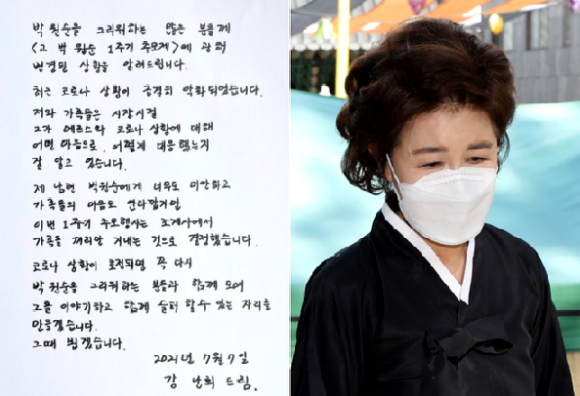 박원순을 그리워하는 많은 분들께
<고 박원순 1주기 추모제>에 관해
변경된 상황을 알려드립니다.
최근 코로나 상황이 급격히 악화되었습니다.
저와 가족들은 시장시절
그가 메르스와 코로나 상황에 대해
어떤 마음으로, 어떻게 대응했는지
잘 알고 있습니다.
제 남편 박원순에게 너무도 미안하고
가족들의 마음도 안타깝지만
이번 1주기 추모행사는 조계사에서
가족들 제례만 지내는 것으로 결정했습니다.
코로나 상황이 호전되면 꼭 다시
박원순을 그리워하는 분들과 함께 모여
그를 이야기하고 함께 슬퍼 할수 있는 자리를
만들겠습니다.
그때 뵙겠습니다.
2021년 7월 7일
강 난희 드림.